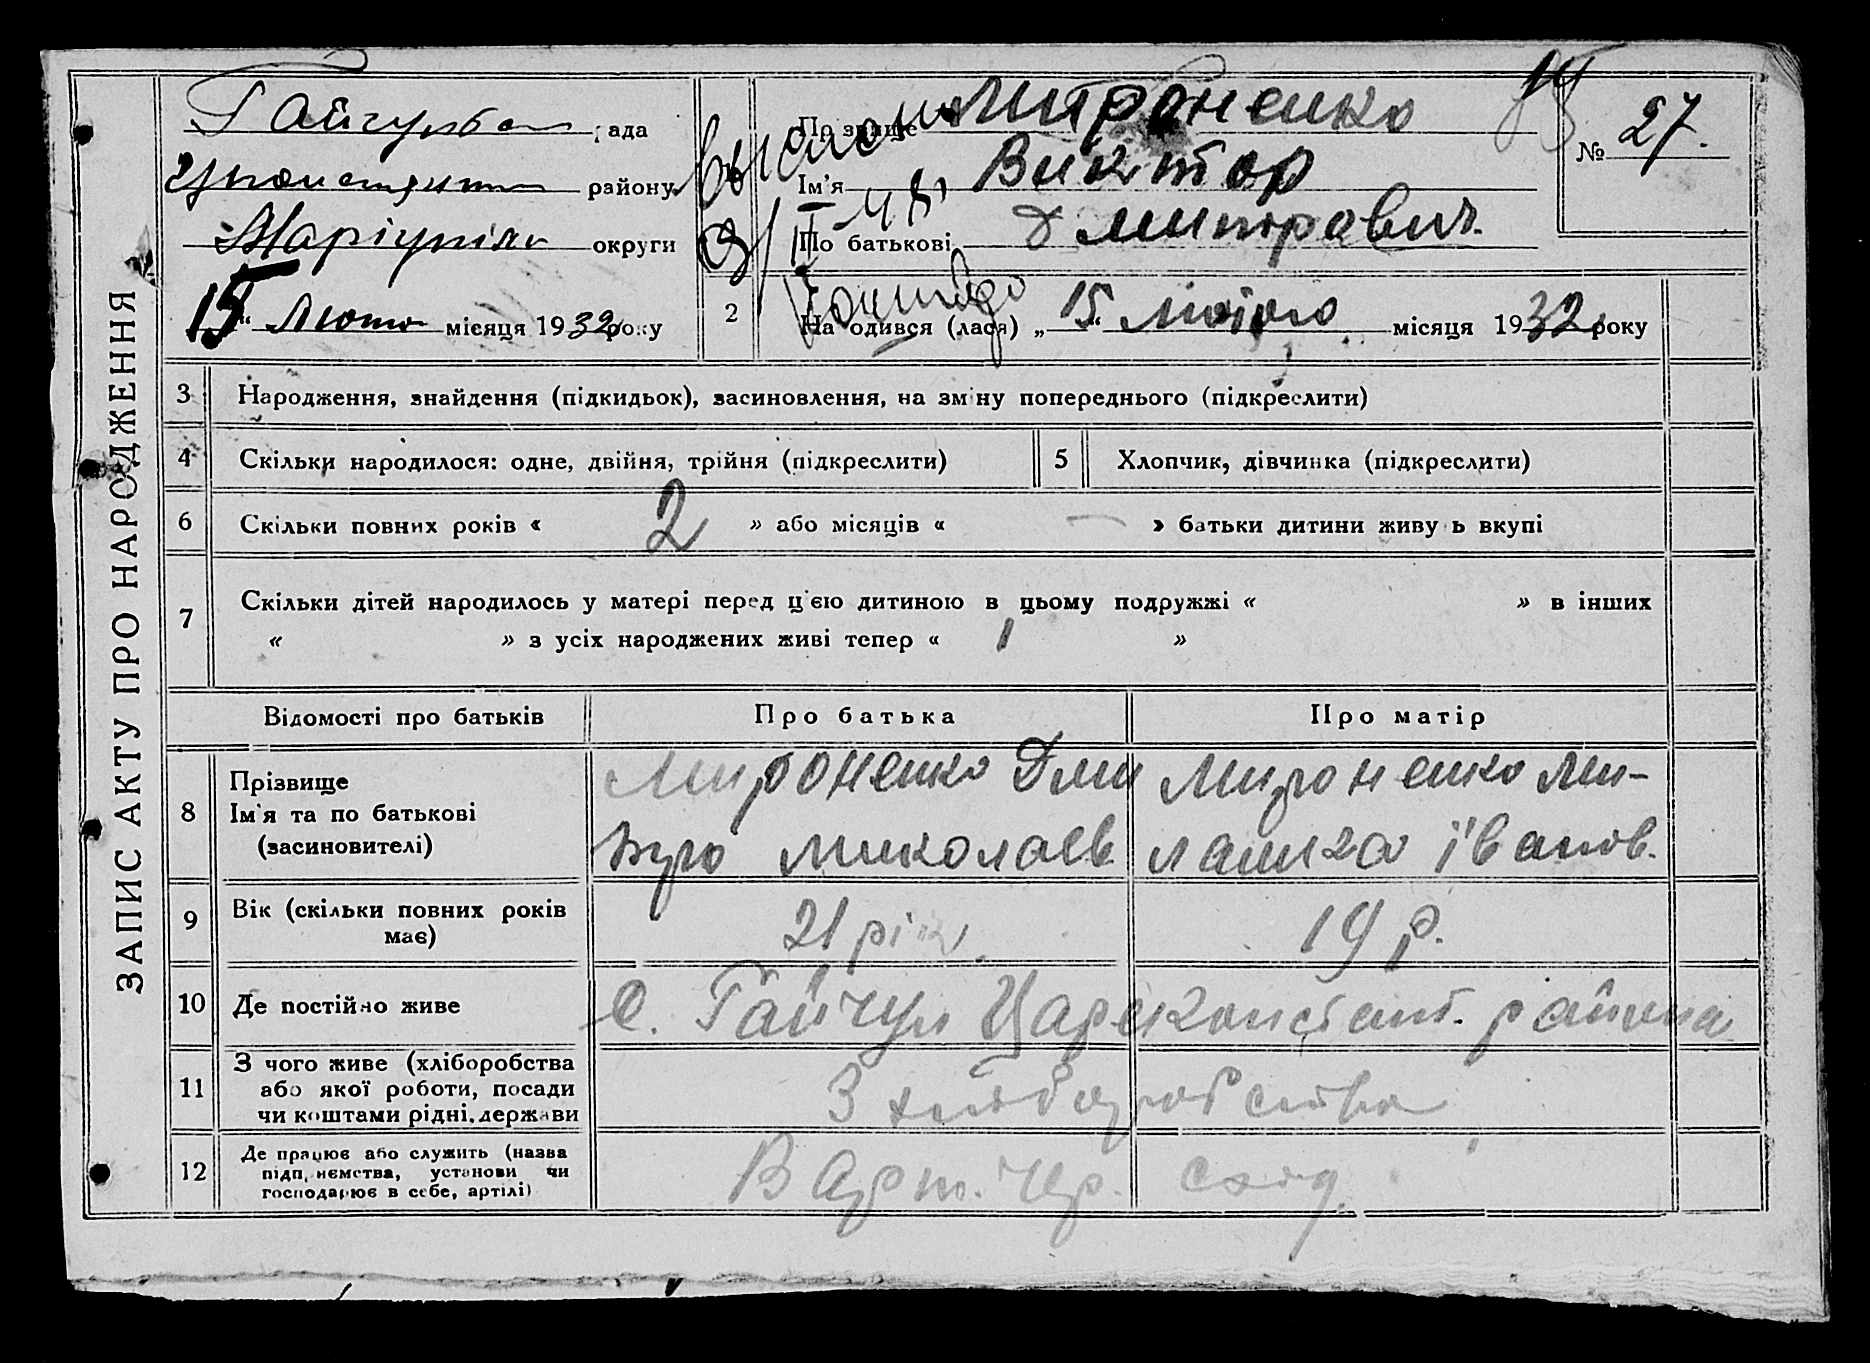 ЗАПИС АКТУ ПРО НАРОДЖЕННЯ
рада
району
Маріупіль округи
15 " Люто місяця 1932 року
Прізвище Мироненко
Ім'я Виктор
По батькові Дмитрович.
№ 27.
2 Народився (лася) „ 15 " Лютого місяця 1932 року
3 Народження, знайдення (підкидьок), засиновлення, на зміну попереднього (підкреслити)
4 Скільки народилося: одне, двійня, трійня (підкреслити)
5 Хлопчик, дівчинка (підкреслити)
6 Скільки повних років « 2 » або місяців « — » батьки дитини живуть вкупі
7 Скільки дітей народилось у матері перед ц'єю дитиною в цьому подружжі « » в інших
« » з усіх народжених живі тепер « 1 »
Відомості про батьків Про батька Про матір
8 Прізвище
Ім'я та по батькові
(засиновителі)
Мироненко Дми
тро Миколаєв.
Мироненко Ми-
ланка Іванов.
9 Вік (скільки повних років
має)
21 рік.
19 р.
10 Де постійно живе
с. Гайчул Цареконстант. района
11 З чого живе (хліборобства
або якої роботи, посади
чи коштами рідні, держави
З хліборобства
12 Де працює або служить (назва
підприємства, установи чи
господарює в себе, артілі)
В Арт. Чер. схід.